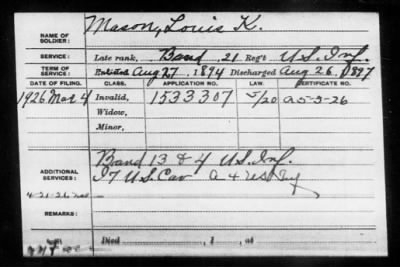 NAME OF SOLDIER: Mason, Louis K.
SERVICE: Late rank, Band, 21 Reg't U.S. Inf.
TERM OF SERVICE: Enlisted Aug 27, 1894 Discharged Aug 26, 1897
DATE OF FILING. CLASS. APPLICATION NO. LAW. CERTIFICATE NO.
1926 Mar 4 Invalid, 1533307 5/20 A 5-5-26
Widow,
Minor,
ADDITIONAL SERVICES: Band 13 & 4 U.S. Inf.
U.S. Cav
4-21-26
REMARKS:
Died , 1 , at